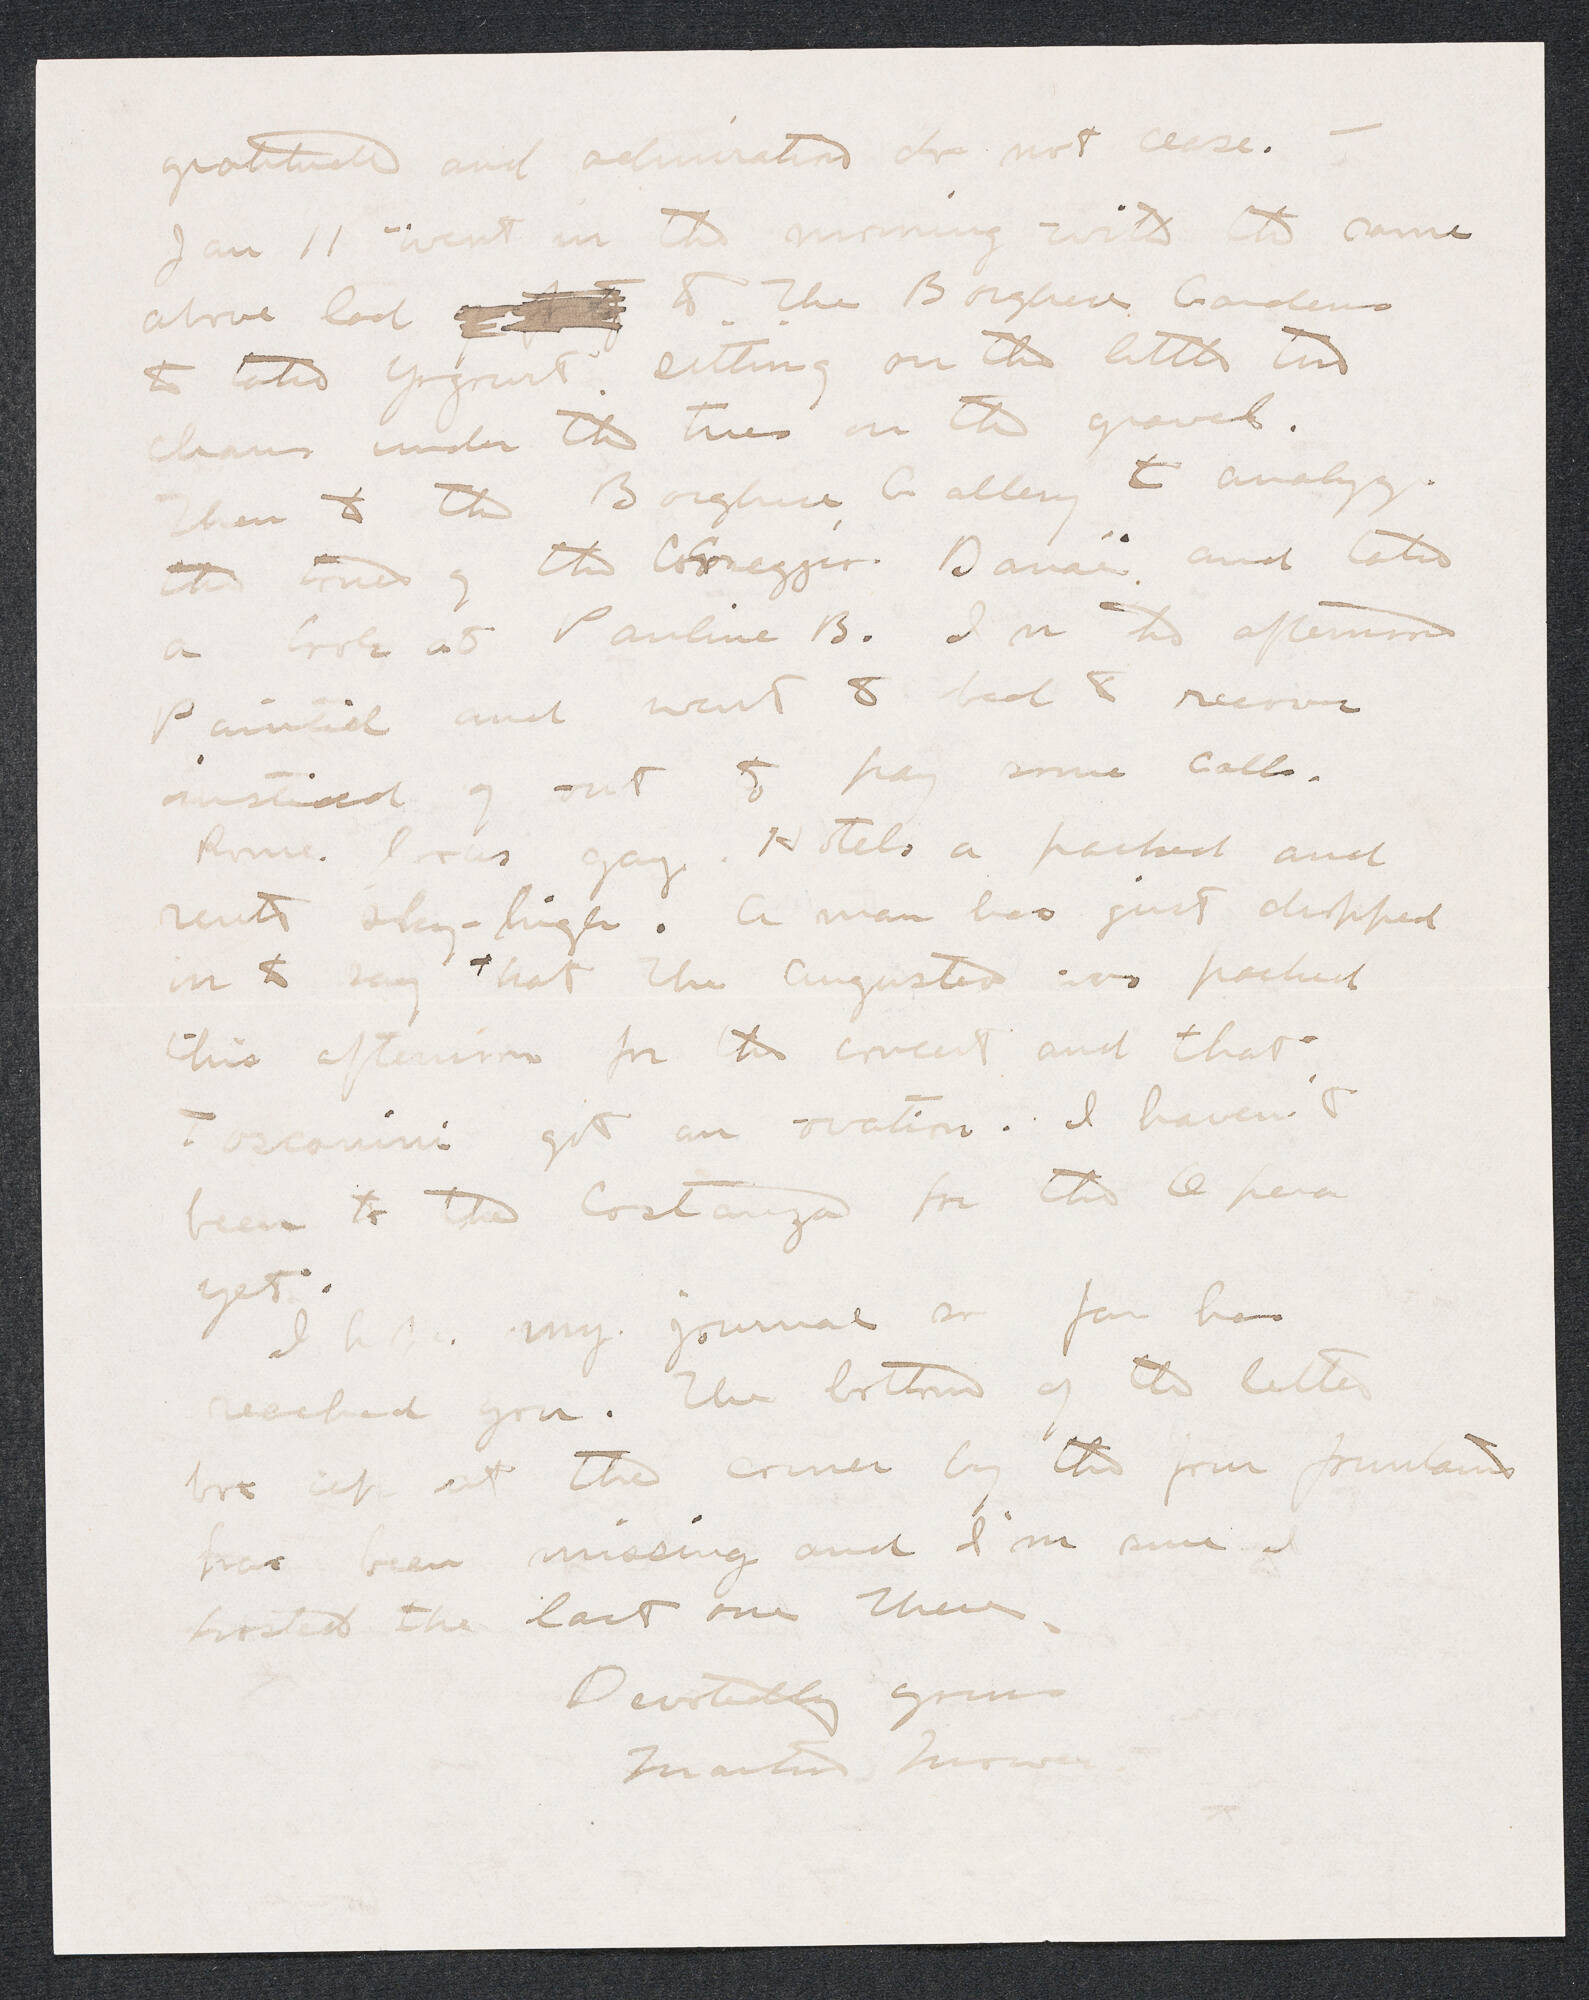 gratitude and admiration do not cease. —
Jan 11 went in the morning with the same
above lad to The Borghese Gardens
to take Yogourt sitting on the little tin
chairs under the trees on the gravel.
Then to the Borghese Gallery to analyze
the tones of the Correggio Danaë and take
a look at Pauline B. In the afternoon
Painted and went to bed to recover
instead of out to pay some calls.
Rome looks gay. Hotels a packed and
rents sky-high. A man has just dropped
in to say that the Augusteo was packed
this afternoon for the concert and that
Toscanini got an ovation. I haven't
been to the Costanza for the Opera
yet.
I hope my journal so far has
reached you. The bottom of the letter
box up at the corner by the four fountains
has been missing and I'm sure I
posted the last one there.
Devotedly yours
Martin Mower